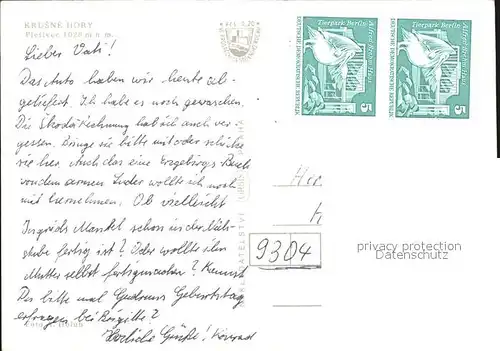 KRUŠNÉ HORY
Plešivec 1028 m n. m.
Lieber Vati!
Das Auto haben wir heute ab-
geliefert. Ich habe es noch gewaschen.
Die Škoda Rechnung hab ich auch ver-
gessen. Bringe sie bitte mit oder schicke
sie her. Auch das eine Erzgebirgs Buch
von dem armen Luder wollte ich noch
mit bernehmen. Ob vielleicht
Ingrids Mantel schon in der Näh-
stube fertig ist? Oder wollte ihn
Mutter selbst fertigmachen? Kannst
Du bitte mal Gudruns Geburtstag
erfragen bei Brigitte?
Herzliche Grüße! Konrad
Tierpark Berlin
Alfred-Brehm-Haus
DEUTSCHE DEMOKRATISCHE REPUBLIK
5
Tierpark Berlin
Alfred-Brehm-Haus
DEUTSCHE DEMOKRATISCHE REPUBLIK
5
ORBIS
PRAHA
Her
9304
privacy protection
Datenschutz